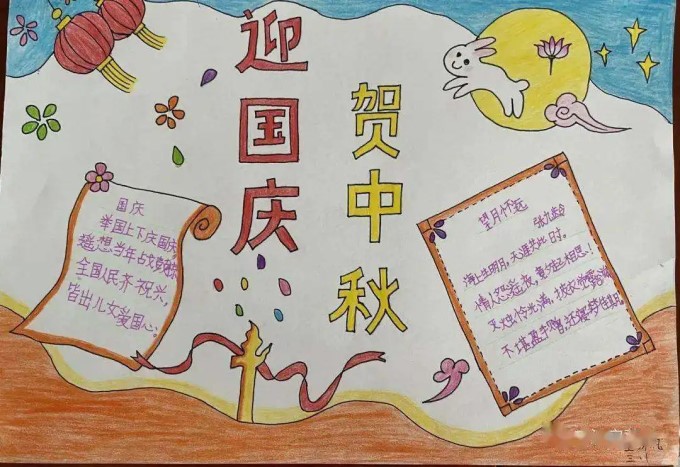 迎国庆
贺中秋
国庆
举国上下庆国庆
遥想当年占
全国人民齐祝兴,
皆出儿女爱国心.
望月怀远
张九龄
海上生明月,天涯共此时.
情人怨遥夜,竟夕起相思!
灭烛怜光满,披衣觉露滋
不堪盈手赠,还寝梦佳期.